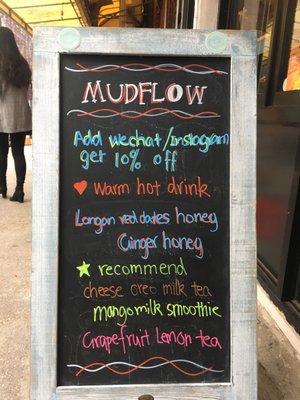 MUDFLOW
Add wechat/Instagram
get 10% off
warm hot drink
Longan red dates honey
Ginger honey
recommend
cheese oreo milk tea
mango milk smoothie
Grapefruit Lemon tea